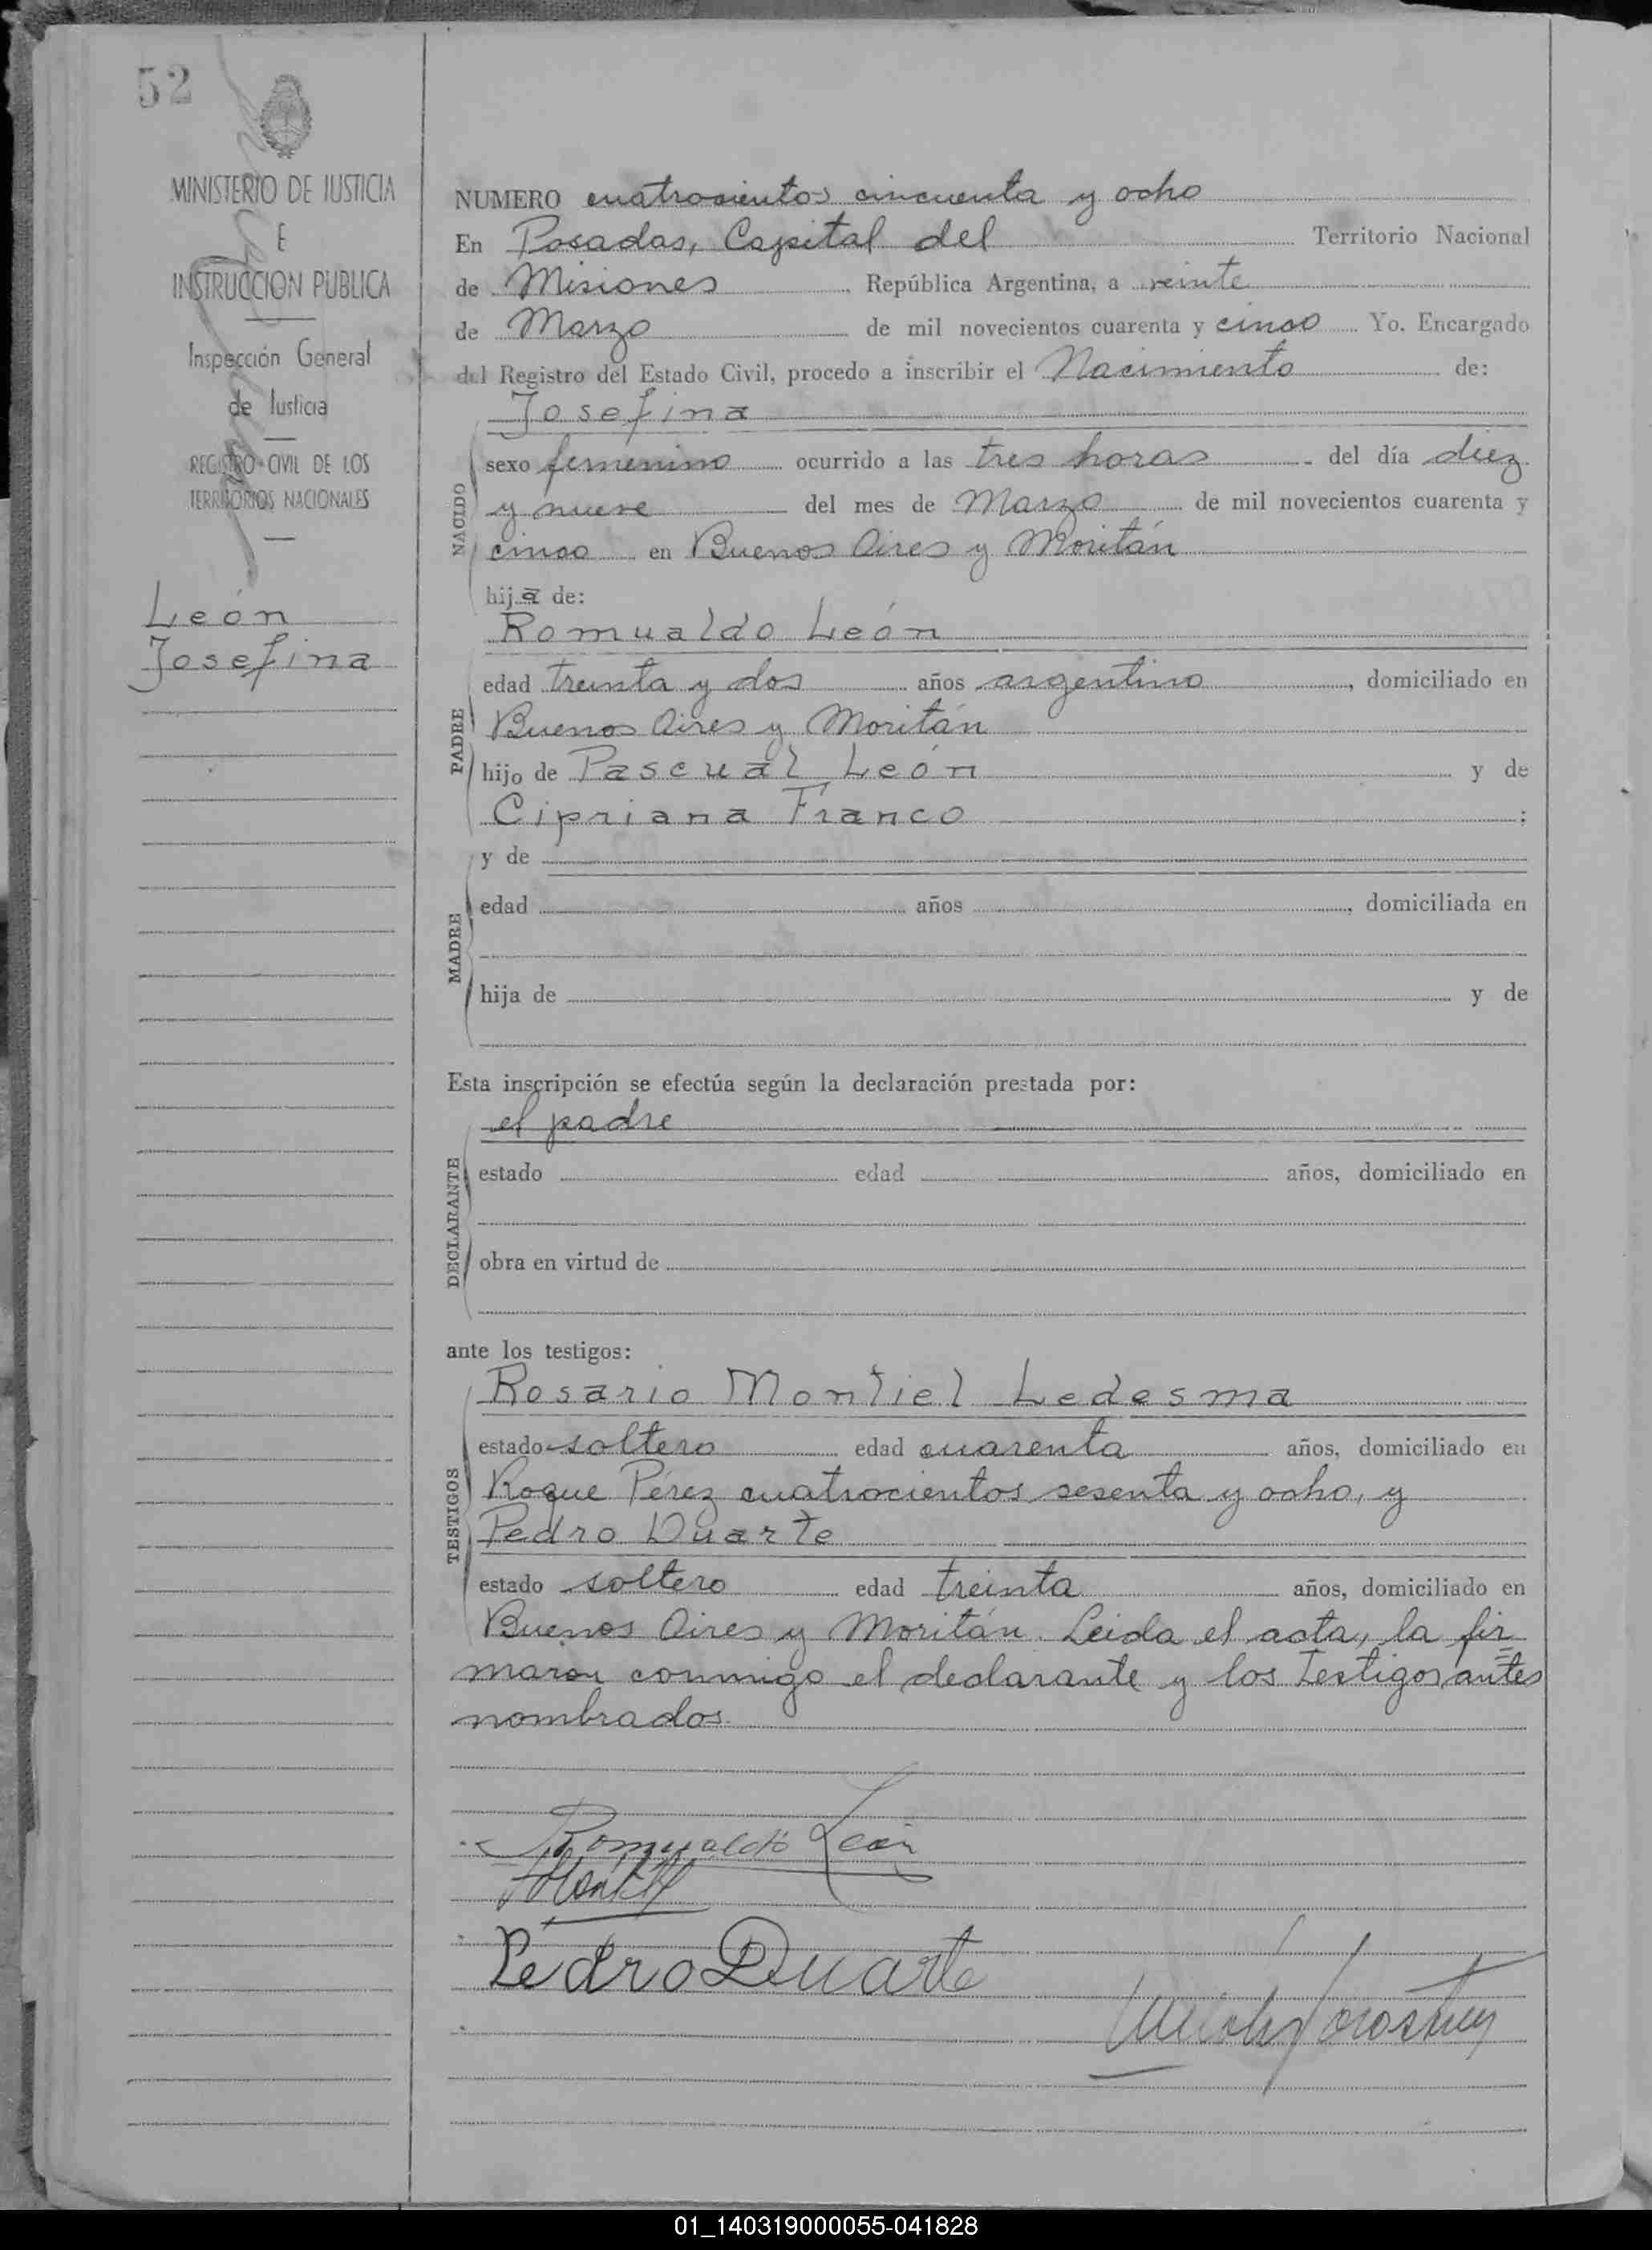 52
MINISTERIO DE JUSTICIA
E
INSTRUCCION PUBLICA
Inspección General
de Justicia
REGISTRO CIVIL DE LOS
TERRITORIOS NACIONALES
León
Josefina
NUMERO cuatrocientos cincuenta y ocho
En Posadas, Capital del Territorio Nacional
de Misiones República Argentina, a veinte
de Marzo de mil novecientos cuarenta y cinco Yo, Encargado
del Registro del Estado Civil, procedo a inscribir el Nacimiento de:
Josefina
NACIDO
sexo femenino ocurrido a las tres horas del día diez
y nueve del mes de Marzo de mil novecientos cuarenta y
cinco en Buenos Aires y Moritán
hija de:
Romualdo León
PADRE
edad treinta y dos años argentino, domiciliado en
Buenos Aires y Moritán
hijo de Pascual León y de
Cipriana Franco :
MADRE
y de
edad años , domiciliada en
hija de y de
Esta inscripción se efectúa según la declaración prestada por:
el padre
DECLARANTE
estado edad años, domiciliado en
obra en virtud de
ante los testigos:
Rosario Montiel Ledesma
TESTIGOS
estado soltero edad cuarenta años, domiciliado en
Roque Pérez cuatrocientos sesenta y ocho, y
Pedro Duarte
estado soltero edad treinta años, domiciliado en
Buenos Aires y Moritán. Leida el acta, la fir=
maron conmigo el declarante y los testigos antes
nombrados.
Romualdo León
Pedro Duarte
01_140319000055-041828